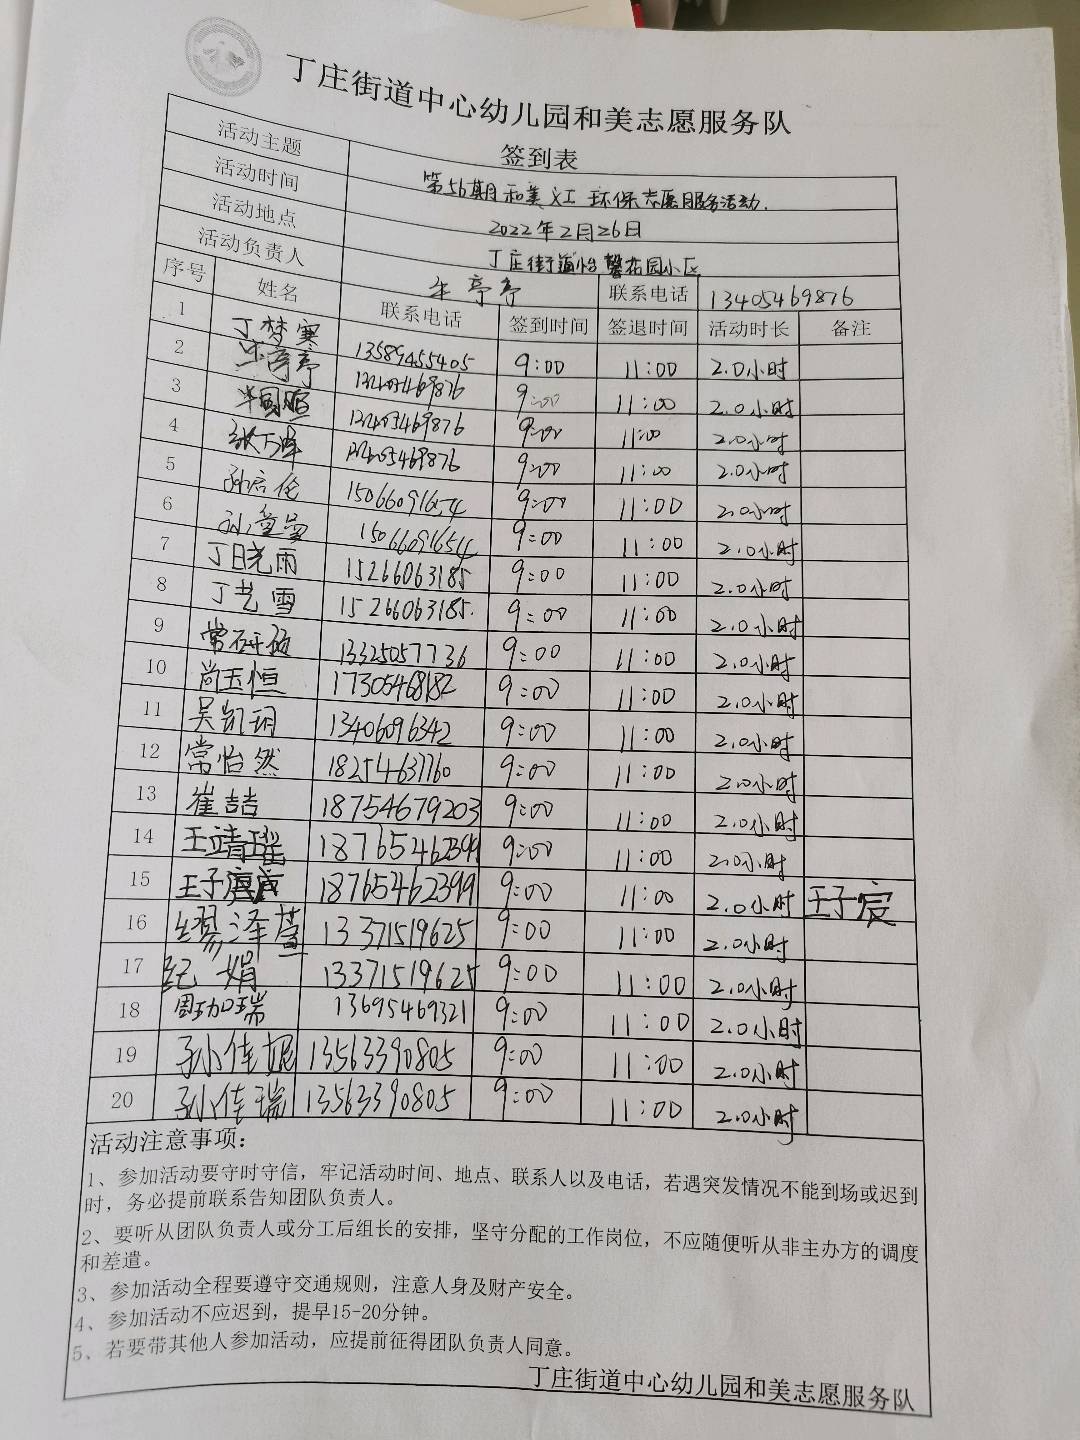 丁庄街道中心幼儿园和美志愿服务队
签到表
活动主题 第56期和美义工 环保志愿服务活动.
活动时间 2022年2月26日
活动地点 丁庄街道怡馨花园小区
活动负责人 牛亭亭 联系电话 13405469876
序号 姓名 联系电话 签到时间 签退时间 活动时长 备注
1 丁梦寒 13589455405 9:00 11:00 2.0小时
2 9:00 11:00 2.0小时
3 9:00 11:00 2.0小时
4 9:00 11:00 2.0小时
5 孙启伦 15066091654 9:00 11:00 2.0小时
6 15066091654 9:00 11:00 2.0小时
7 丁晓雨 15266063185 9:00 11:00 2.0小时
8 丁艺雪 15266063185. 9:00 11:00 2.0小时
9 13325057736 9:00 11:00 2.0小时
10 尚玉恒 17305468182 9:00 11:00 2.0小时
11 吴凯玥 13406096342 9:00 11:00 2.0小时
12 常怡然 18254637760 9:00 11:00 2.0小时
13 崔喆 18754679203 9:00 11:00 2.0小时
14 王靖瑶 18765462399 9:00 11:00 2.0小时
15 王子宸 18765462399 9:00 11:00 2.0小时 王子宸
16 缪泽萱 13371519625 9:00 11:00 2.0小时
17 纪娟 13371519625 9:00 11:00 2.0小时
18 周珈瑞 13695469321 9:00 11:00 2.0小时
19 孙佳妮 13563390805 9:00 11:00 2.0小时
20 孙佳瑞 13563390805 9:00 11:00 2.0小时
活动注意事项：
1、参加活动要守时守信，牢记活动时间、地点、联系人以及电话，若遇突发情况不能到场或迟到
时，务必提前联系告知团队负责人。
2、要听从团队负责人或分工后组长的安排，坚守分配的工作岗位，不应随便听从非主办方的调度
和差遣。
3、参加活动全程要遵守交通规则，注意人身及财产安全。
4、参加活动不应迟到，提早15-20分钟。
5、若要带其他人参加活动，应提前征得团队负责人同意。
丁庄街道中心幼儿园和美志愿服务队